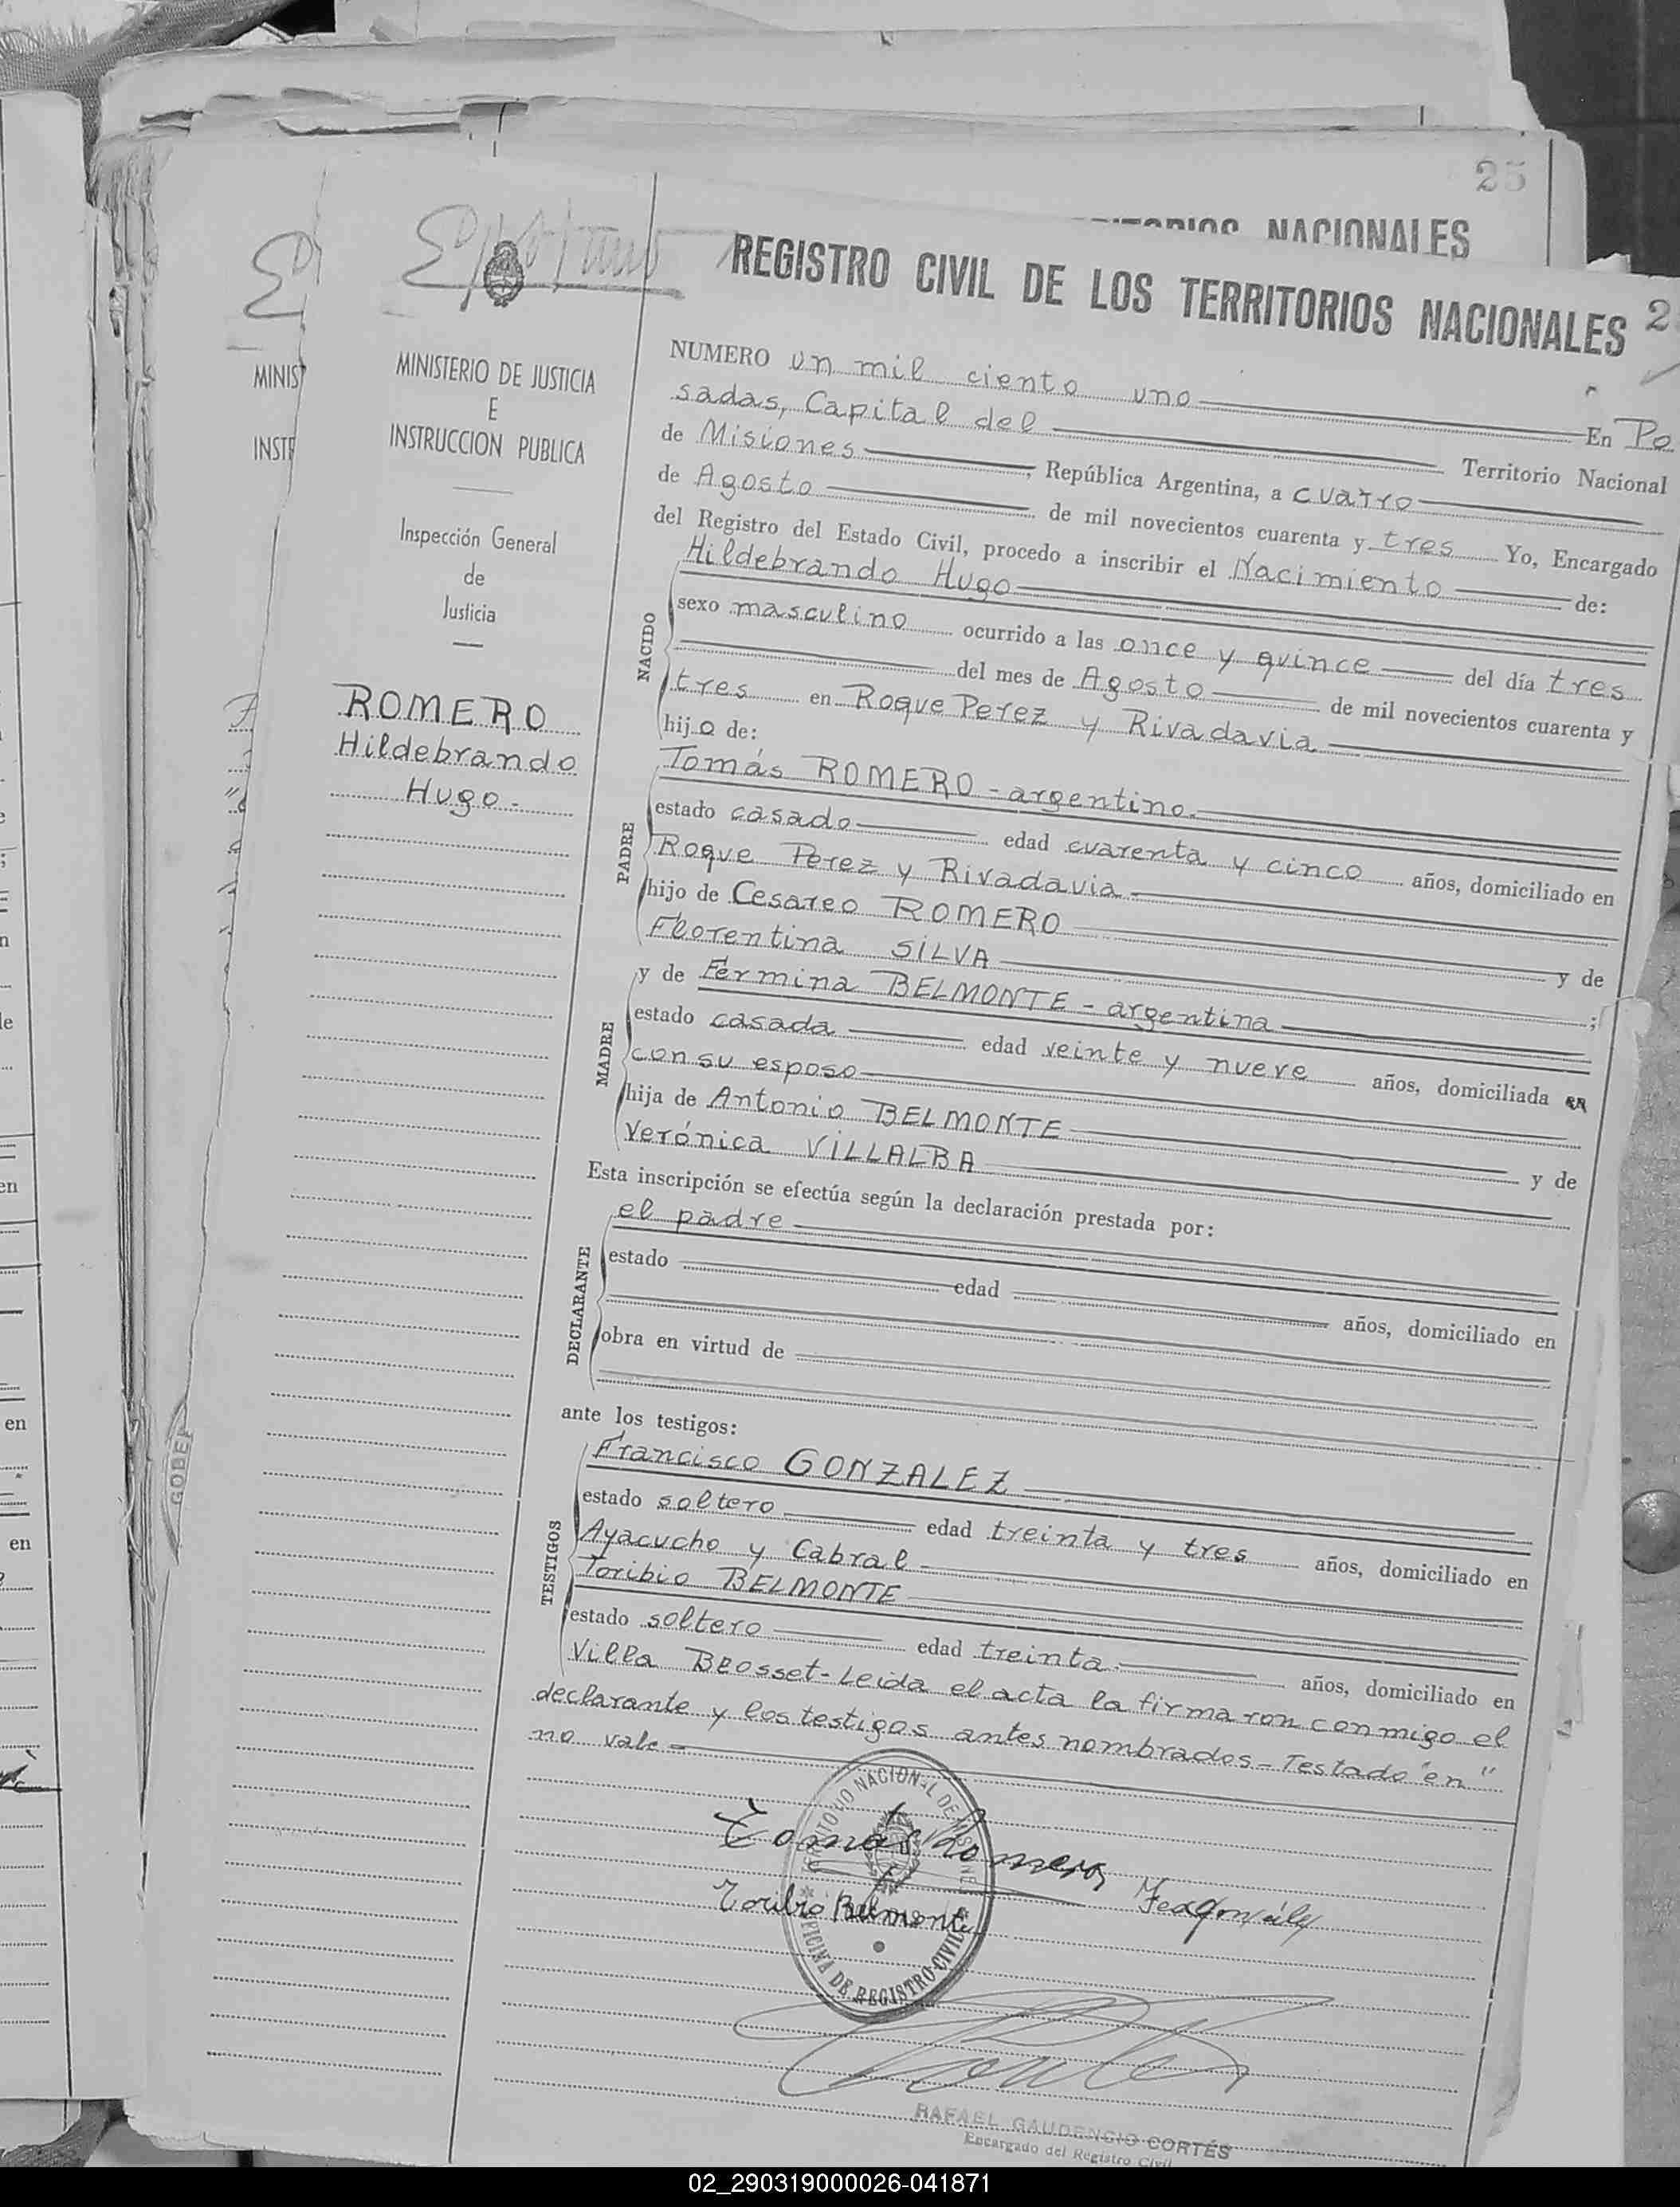 25
NACIONALES
REGISTRO CIVIL DE LOS TERRITORIOS NACIONALES
2
MINIS
INSTR
MINISTERIO DE JUSTICIA
E
INSTRUCCION PUBLICA
Inspección General
de
Justicia
ROMERO
Hildebrando
Hugo.-
NUMERO un mil ciento uno En Po
sadas, Capital del Territorio Nacional
de Misiones, República Argentina, a cuatro
de Agosto de mil novecientos cuarenta y tres Yo, Encargado
del Registro del Estado Civil, procedo a inscribir el Nacimiento de:
NACIDO
Hildebrando Hugo
sexo masculino ocurrido a las once y quince del día tres
del mes de Agosto de mil novecientos cuarenta y
tres en Roque Perez y Rivadavia
hijo de:
PADRE
Tomás ROMERO - argentino.
estado casado edad cuarenta y cinco años, domiciliado en
Roque Perez y Rivadavia
hijo de Cesareo ROMERO y de
Florentina SILVA ;
MADRE
y de Fermina BELMONTE - argentina
estado casada edad veinte y nueve años, domiciliada en
con su esposo
hija de Antonio BELMONTE y de
Verónica VILLALBA
Esta inscripción se efectúa según la declaración prestada por:
DECLARANTE
el padre
estado edad años, domiciliado en
obra en virtud de
ante los testigos:
TESTIGOS
Francisco GONZALEZ
estado soltero edad treinta y tres años, domiciliado en
Ayacucho y Cabral
Toribio BELMONTE
estado soltero edad treinta años, domiciliado en
Villa Blosset - Leida el acta la firmaron conmigo el
declarante y los testigos antes nombrados - Testado "en"
no vale -
TERRITORIO NACIONAL DE MISIONES
OFICINA DE REGISTRO CIVIL
Tomás Romero
Toribio Belmonte
Fco Gonzálz
RAFAEL GAUDENCIO CORTÉS
Encargado del Registro Civil
GOBER
en
en
02_290319000026-041871